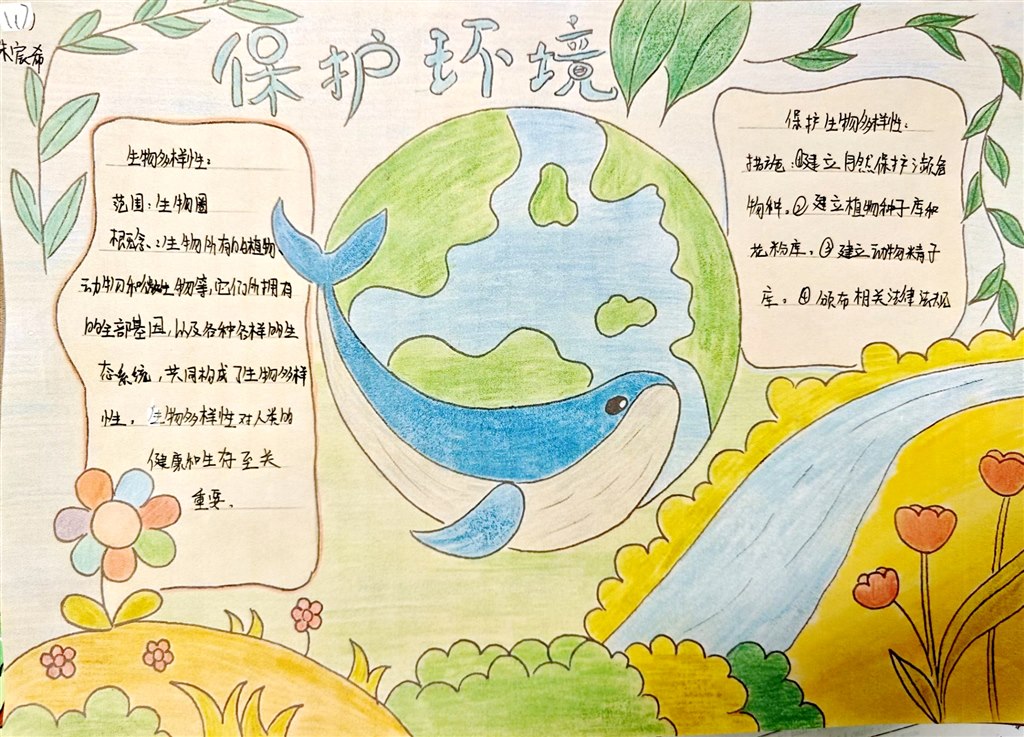 (1)
保护环境
生物多样性：
范围：生物圈
概念：生物所有的植物
动物和微生物等，它们所拥有
的全部基因，以及各种各样的生
态系统，共同构成了生物多样
性。生物多样性对人类的
健康和生存至关
重要。
保护生物多样性：
措施：①建立自然保护濒危
物种。②建立植物种子库和
花粉库。③建立动物精子
库。④颁布相关法律法规